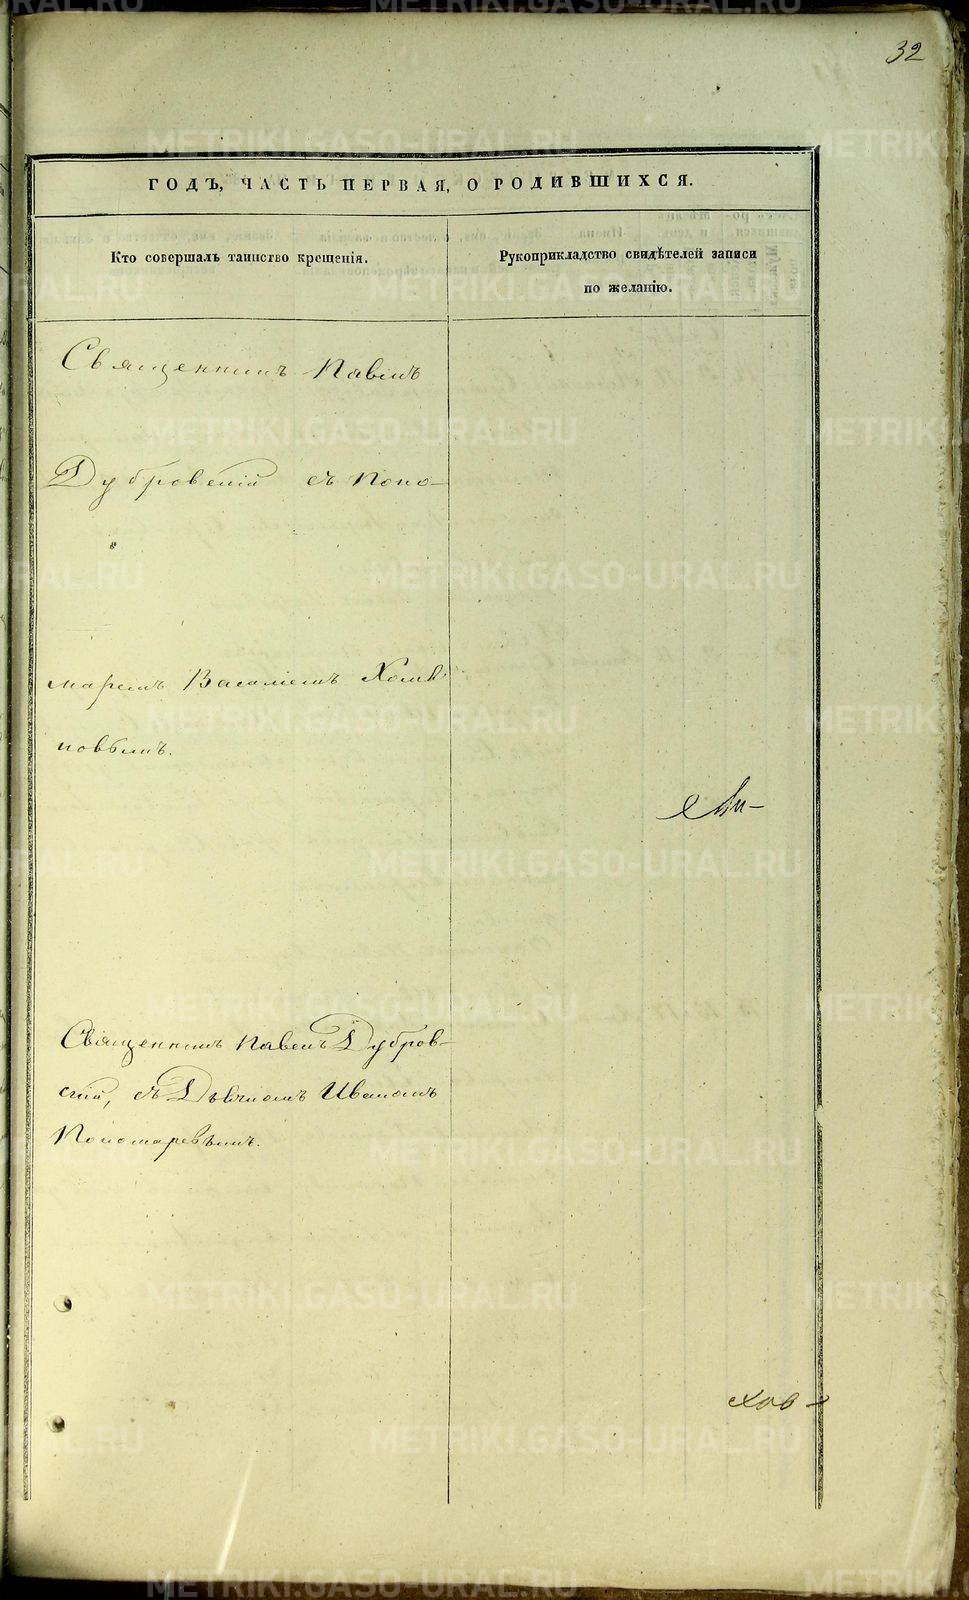 32
ГОДЪ, ЧАСТЬ ПЕРВАЯ, О РОДИВШИХСЯ.
Кто совершалъ таинство крещенія.
Рукоприкладство свидѣтелей записи
по желанію.
Священникъ Павелъ
Дубровскій съ Поно-
маремъ Василіемъ
новымъ.
Священникъ Павелъ Дубров-
скій, съ Дьячкомъ Иваномъ
Пономаревымъ.
METRIKI.GASO-URAL.RU